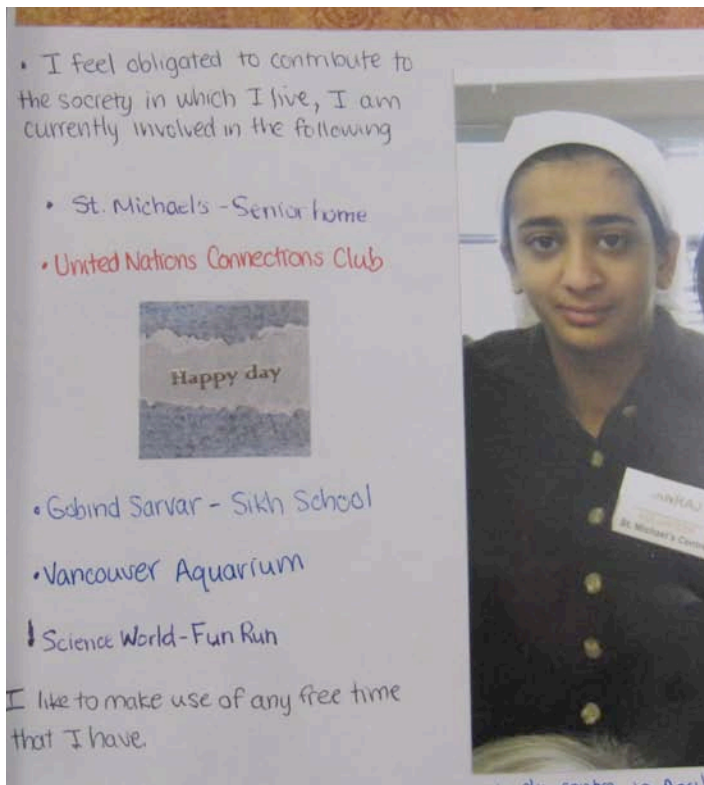 • I feel obligated to contribute to
the socrety in which I live, I am
currently involved in the following
• St. Michael's - Senior home
• United Nations Connections Club
Happy day
• Gobind Sarvar - Sikh School
• Vancouver Aquarium
! Science World - Fun Run
I like to make use of any free time
that I have.
St. Michael's Centre